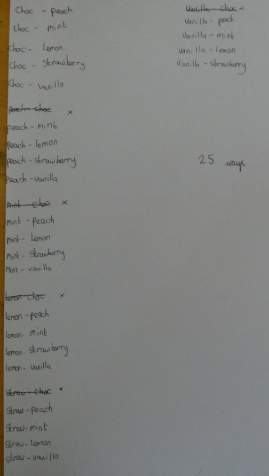 Choc - peach
Choc - mint
Choc - lemon
Choc - Strawberry
Choc - vanilla
Peach - choc ×
peach - mint
peach - lemon
peach - strawberry
Peach - vanilla
Mint - choc ×
mint - Peach
mint - lemon
mint - Strawberry
Mint - vanilla
lemon - choc ×
lemon - peach
lemon mint
lemon - strawberry
lemon - vanilla
Straw - choc ×
Straw - peach
Straw - mint
Straw - lemon
Straw - vanilla
Vanilla - choc ×
Vanilla - peach
Vanilla - mint
vanilla - lemon
Vanilla - strawberry
25 ways